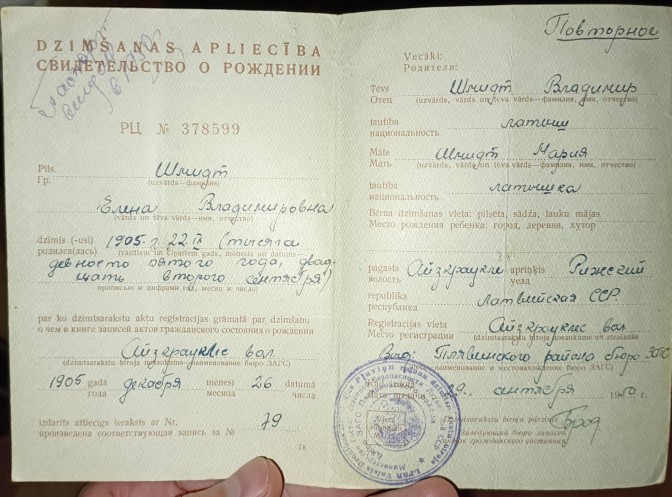 DZIMŠANAS APLIECĪBA
СВИДЕТЕЛЬСТВО О РОЖДЕНИИ
РЦ № 378599
Pils.
Гр. Шмидт
(uzvārds—фамилия)
Елена Владимировна
(vārds un tēva vārds—имя, отчество)
dzimis (-usi) 1905 г. 22.IX (тысяча
родился(лась) (vārdiem un cipariem gads, mēnesis un datums—
девятьсот пятого года, двад-
цать второго сентября)
прописью и цифрами год, месяц и число)
par ko dzimtsarakstu aktu reģistrācijas grāmatā par dzimšanu
о чем в книге записей актов гражданского состояния о рождении
Айзкраукле вол.
(dzimtsarakstu biroja nosaukums—наименование бюро ЗАГС)
1905 gada декабря mēnesī 26 datumā
года месяца числа
izdarīts attiecīgs ieraksts ar Nr. 79
произведена соответствующая запись за №
Повторное
Vecāki:
Родители:
Tēvs Шмидт Владимир
Отец (uzvārds, vārds un tēva vārds—фамилия, имя, отчество)
tautība латыш
национальность
Māte Шмидт Мария
Мать (uzvārds, vārds un tēva vārds—фамилия, имя, отчество)
tautība латышка
национальность
Bērna dzimšanas vieta: pilsēta, sādža, lauku mājas
Место рождения ребенка: город, деревня, хутор
pagasts Айзкраукле apriņķis Рижский
волость уезд
republika Латвийская ССР.
республика
Reģistrācijas vieta Айзкраукле вол.
Место регистрации (dzimtsarakstu biroja nosaukums un atrašanās
Выд: Плявинского района бюро ЗАГС
наименование и местонахождение бюро ЗАГС)
29. сентября 1950 г.
Dzimtsarakstu biroja pārzinis
Заведующий бюро записей
актов гражданского состояния